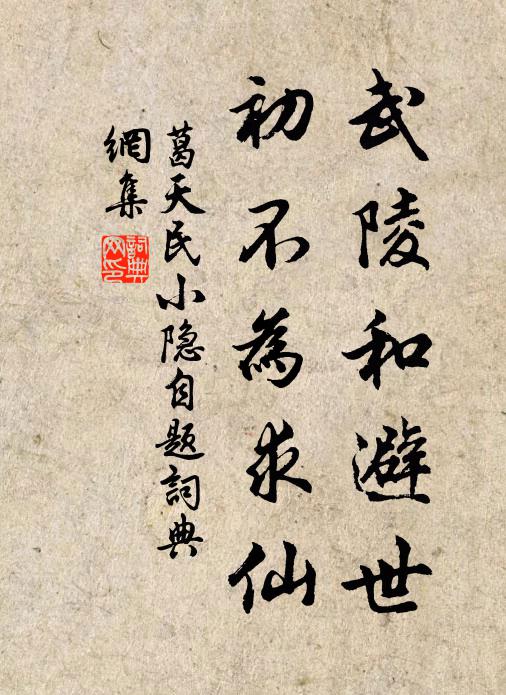 武陵和避世
初不為求仙
葛天民小隐自题詞典
網集
詞典网印